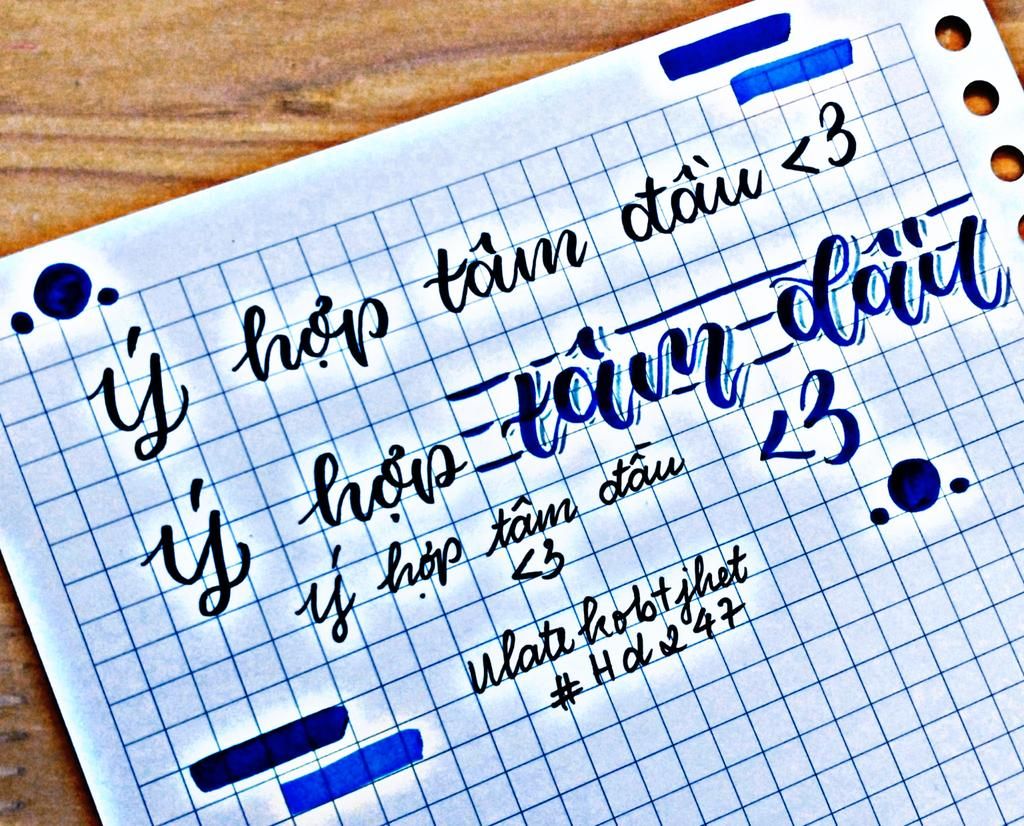 Ý hợp tâm đầu <3
Ý hợp tâm đầu
<3
Ý hợp tâm đầu
<3
Ulatr kobtjhet
#Hd247